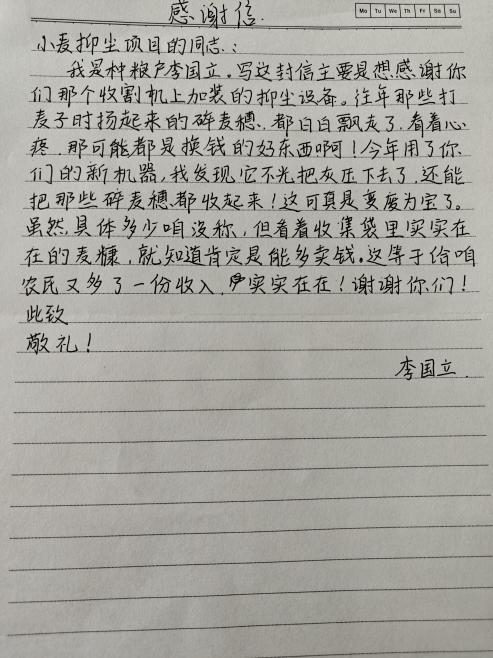 感谢信.
Mo Tu We Th Fr Sa Su
小麦抑尘项目的同志：
我是种粮户李国立。写这封信主要是想感谢你
们那个收割机上加装的抑尘设备。往年那些打
麦子时扬起来的碎麦穗，都白白飘走了，看着心
疼，那可能都是换钱的好东西啊！今年用了你
们的新机器，我发现它不光把灰压下去了，还能
把那些碎麦穗都收起来！这可真是变废为宝了。
虽然具体多少咱没称，但看着收集袋里实实在
在的麦糠，就知道肯定是能多卖钱。这等于给咱
农民又多了一份收入，实实在在！谢谢你们！
此致
敬礼！
李国立.